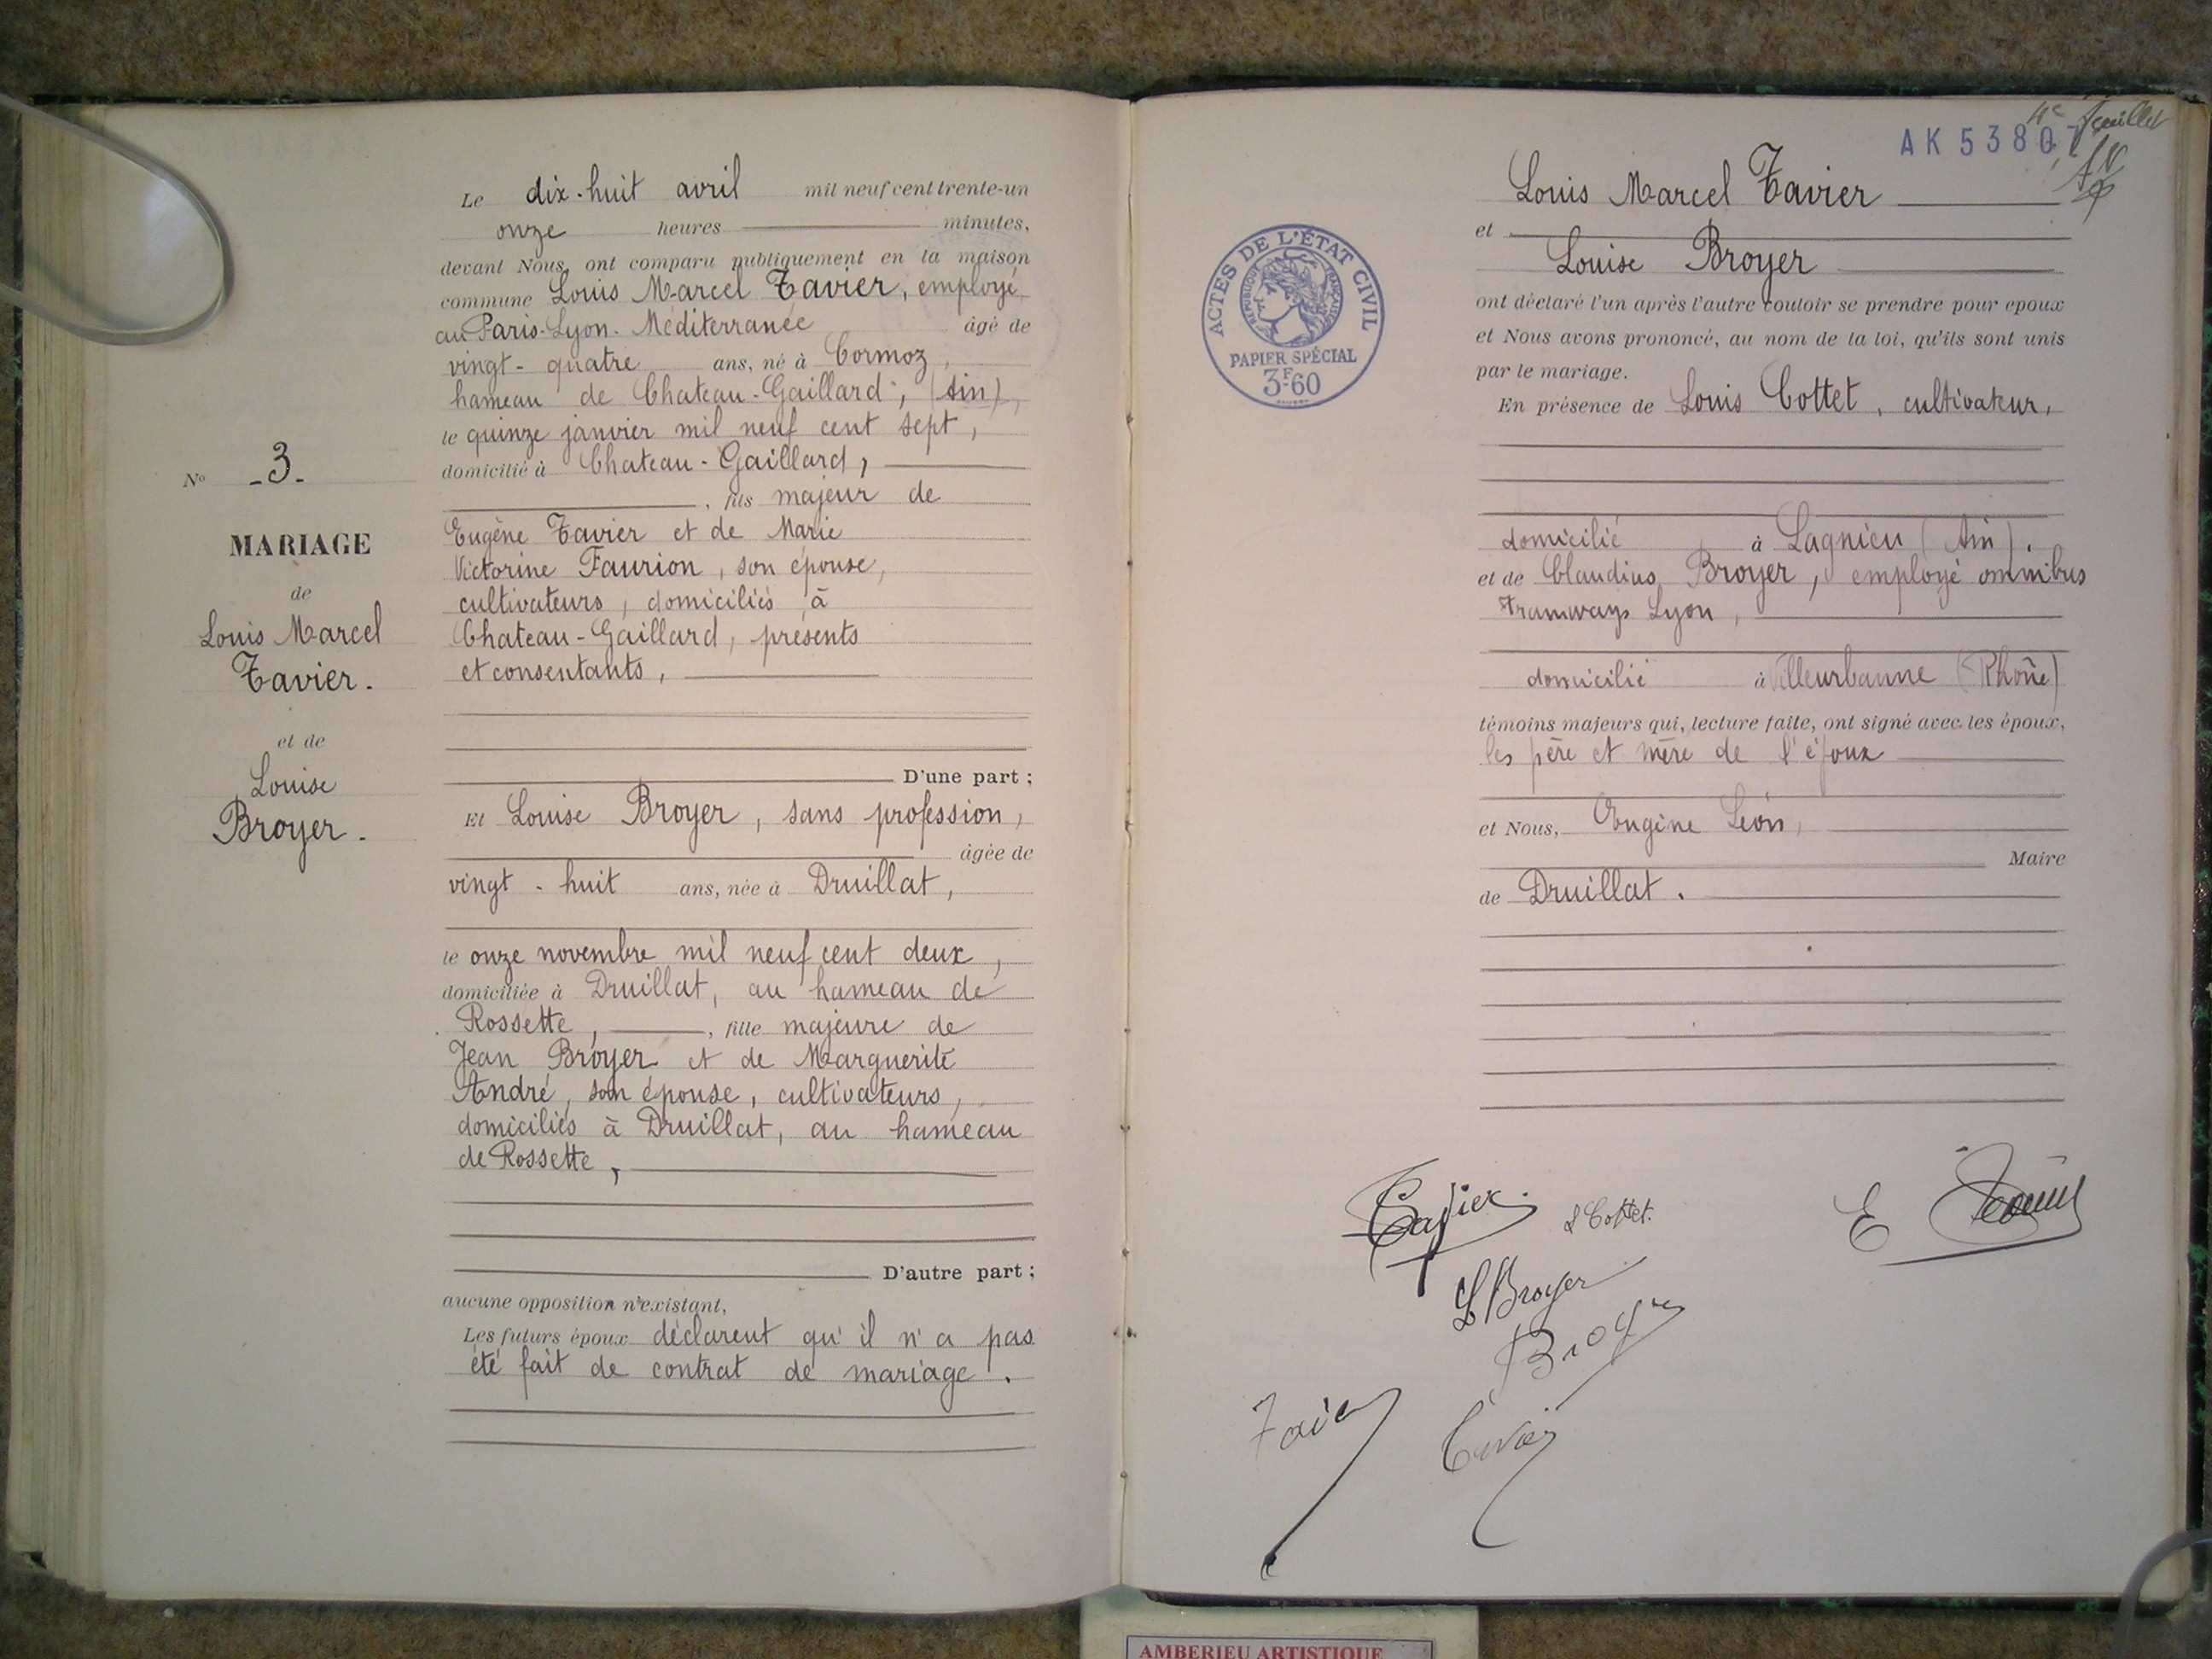 Le dix-huit avril mil neuf cent trente-un
onze heures minutes,
devant Nous, ont comparu publiquement en la maison
commune Louis Marcel Tavier, employé
au Paris-Lyon-Méditerranée âgé de
vingt-quatre ans, né à Cormoz,
hameau de Chateau-Gaillard, (Ain),
le quinze janvier mil neuf cent sept,
domicilié à Chateau-Gaillard,
, fils majeur de
Eugène Tavier et de Marie
Victorine Faurion, son épouse,
cultivateurs, domiciliés à
Chateau-Gaillard, présents
et consentants,
D'une part ;
Et Louise Broyer, sans profession,
âgée de
vingt-huit ans, née à Druillat,
le onze novembre mil neuf cent deux,
domiciliée à Druillat, au hameau de
Rossette, , fille majeure de
Jean Broyer et de Marguerite
André, son épouse, cultivateurs,
domiciliés à Druillat, au hameau
de Rossette,
D'autre part ;
aucune opposition n'existant,
Les futurs époux déclarent qu'il n'a pas
été fait de contrat de mariage.
No -3-
MARIAGE
de
Louis Marcel
Tavier.
et de
Louise
Broyer.
4e feuillet
AK 53807
Louis Marcel Tavier
et
Louise Broyer
ont déclaré l'un après l'autre vouloir se prendre pour époux
et Nous avons prononcé, au nom de la loi, qu'ils sont unis
par le mariage.
En présence de Louis Cottet, cultivateur,
domicilié à Lagnieu (Ain).
et de Claudius Broyer, employé omnibus
tramways Lyon,
domicilié à Villeurbanne (Rhône)
témoins majeurs qui, lecture faite, ont signé avec les époux,
les père et mère de l'époux
et Nous, Eugène Léon,
Maire
de Druillat.
ACTES DE L'ÉTAT CIVIL
RÉPUBLIQUE FRANÇAISE
PAPIER SPÉCIAL
3F60
Tavier
L Cottet.
L Broyer
Broyer
AMBERIEU ARTISTIQUE